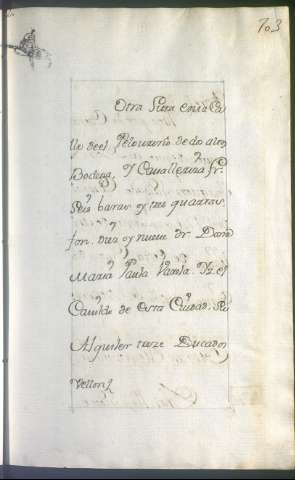 703
Otra Pieza en la Ca
lle de el Pelourerio de do altos
Bodega, y Cavalleriza fr.
Seis baras y tres quartas
fon. dies y nueve de Dona
Maria Paula Varela Pz. el
Cavildo de esta Ciudad. Su
Alquiler treze Ducados
Vellon